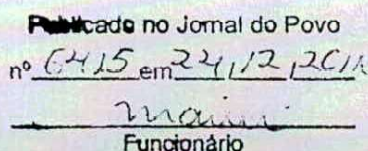 Publicado no Jornal do Povo
nº 6415 em 24/12/201
Funcionário